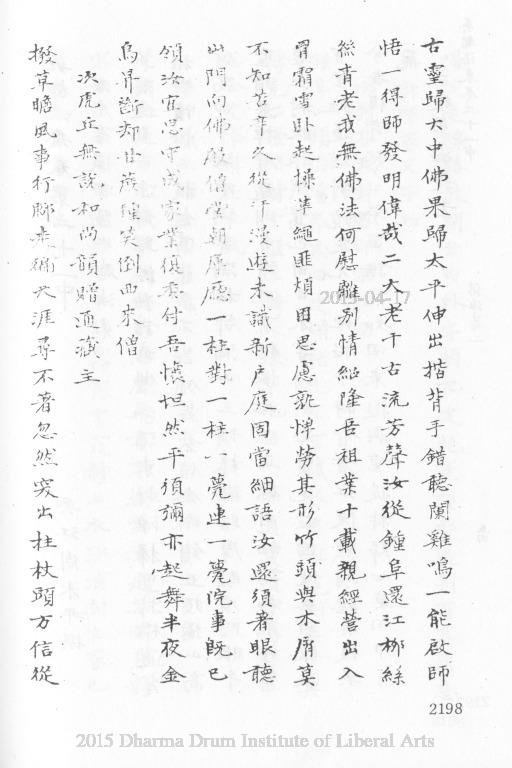 古靈歸大中佛果歸太平伸出揩背手錯聽闌雞鳴一能啟師
悟一得師發明偉哉二大老千古流芳聲汝從鍾阜還江柳絲
絲青老我無佛法何慰離別情紹隆吾祖業十載親經營出入
冒霜雪臥起操準繩匪煩困思慮孰憚勞其形竹頭與木屑莫
不知苦辛久從汗漫遊未識新戶庭固當細語汝還須著眼聽
山門向佛殿僧堂朝廚廳一柱對一柱一甍連一甍院事既已
領汝宜忽平成家業須委付吾懷坦然平須彌亦起舞半夜金
烏昇斷却廿蔗種笑倒西來僧
次虎丘無說和尚韻贈通藏主
撥草瞻風事行腳走徧天涯尋不著忽然突出拄杖頭方信從
2198
2015-04-17
2015 Dharma Drum Institute of Liberal Arts